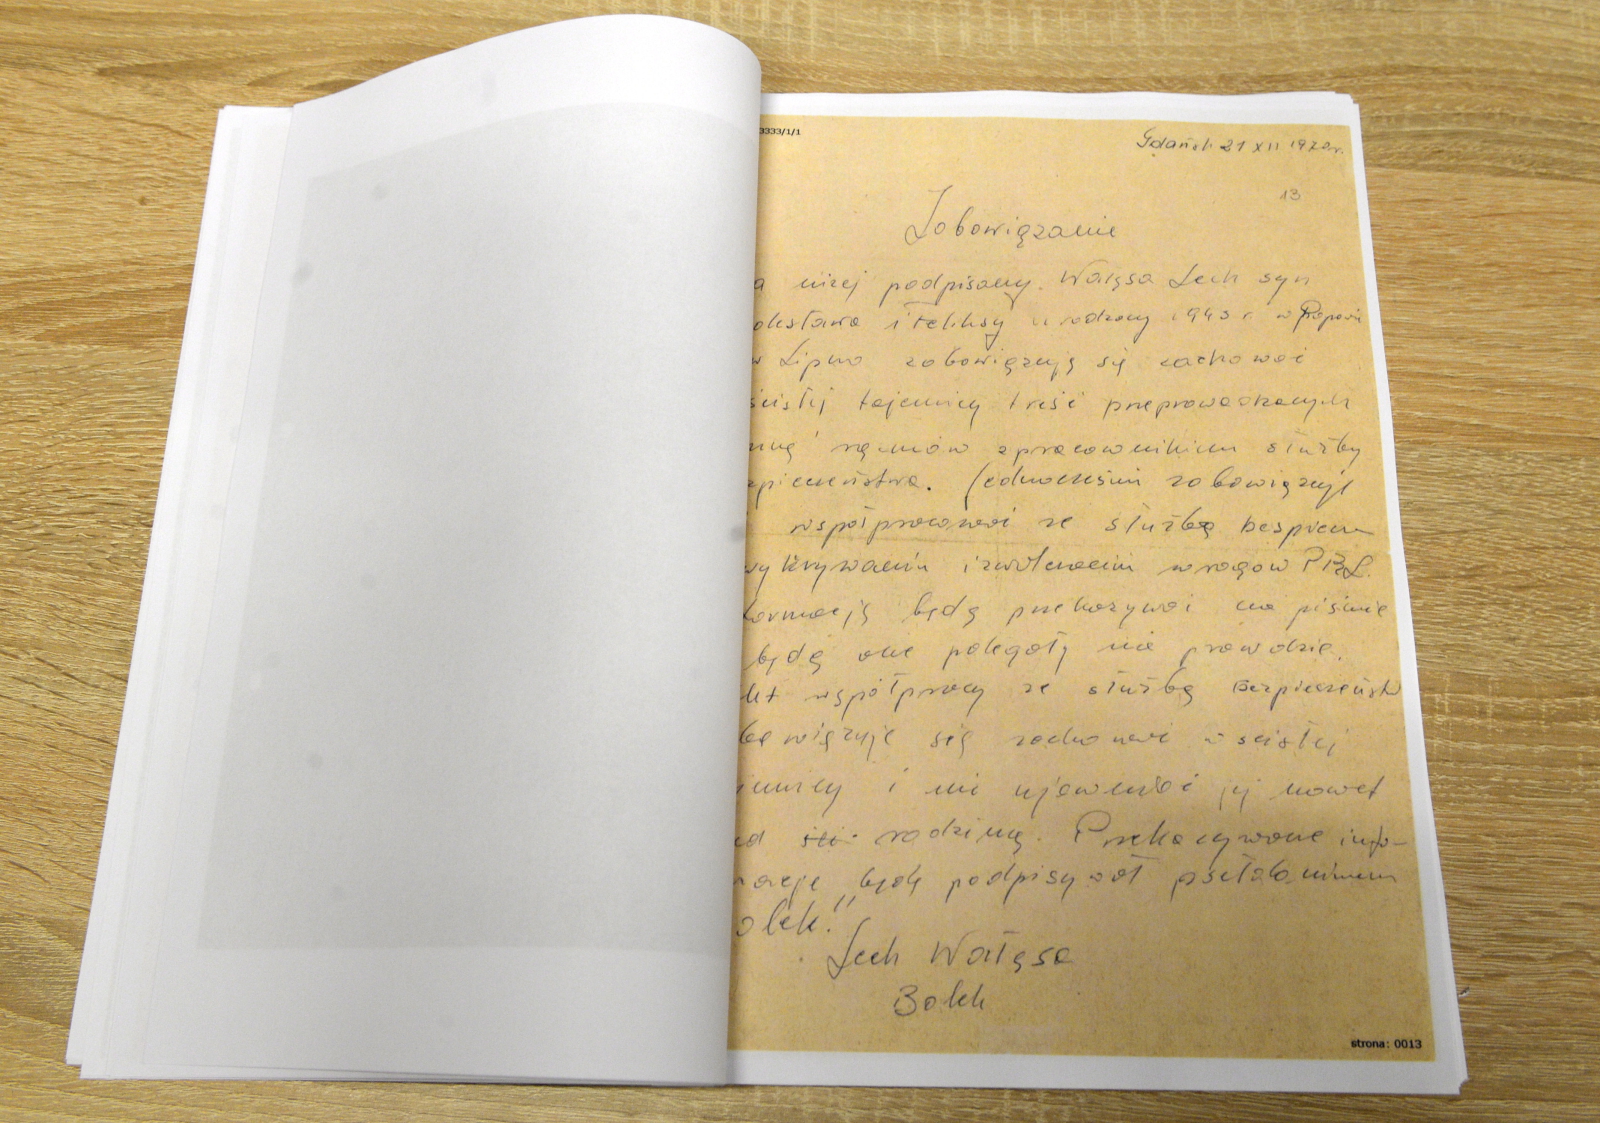 3333/1/1
Gdańsk 21 XII 1970r.
13
Zobowiązanie
a niżej podpisany. Wałęsa Lech syn
olesława i Feliksy urodzony 1943 r. w Popowi
w Lipno zobowiązują się zachować
ścisłej tajemnicy treść przeprowadzanych
mną rozmów z pracownikiem służby
zpieczeństwa. Jednocześnie zobowiązuje
współpracować ze służbą bezpiecz
wykrywaniu i zwalczaniu wrogów PRL.
formacje będą przekazywać na piśmie
będą one polegały na prawdzie.
kt współpracy ze służbą bezpieczeńst
bowiązuje się zachować w ścisłej
jemnicy i nie ujawniać jej nawet
ed rodziną. Przekazywane info-
macje będę podpisywał pseudonimem
olek."
Lech Wałęsa
Bolek
strona: 0013